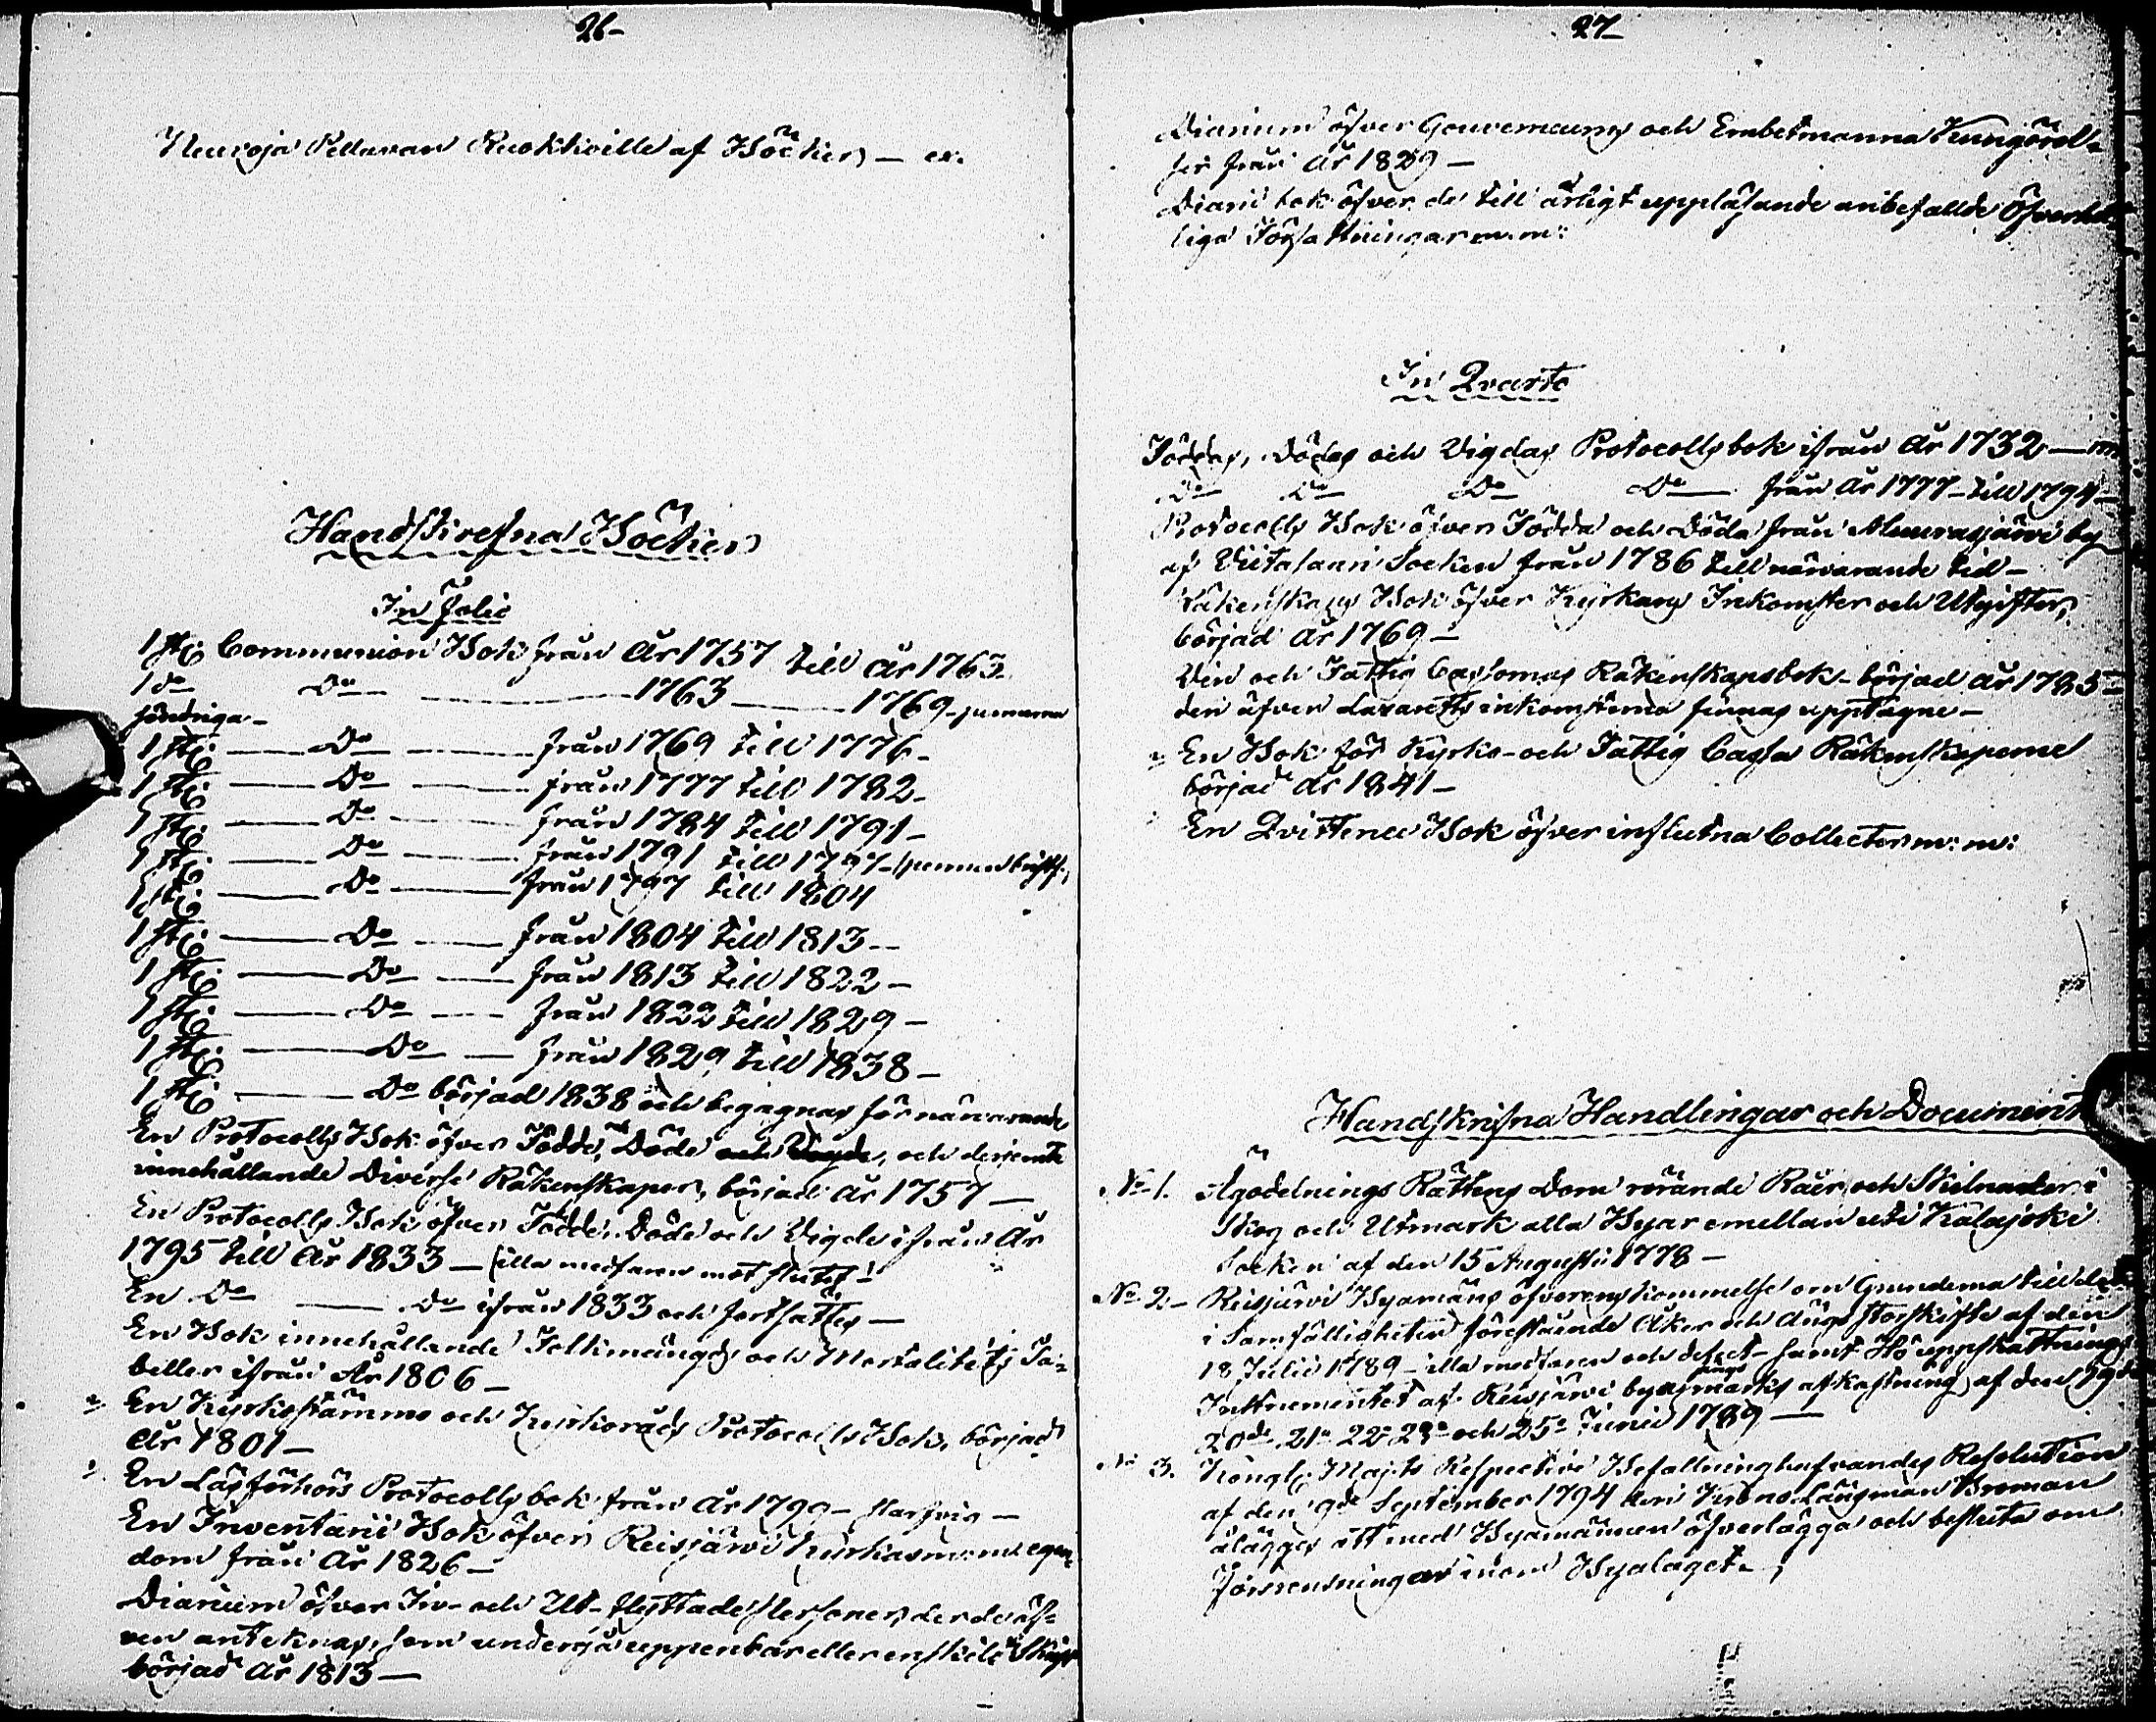 26-
Neuvoja Pellavan Ruokkville af Böcker – ex.
Handskrefna Böcker
In folio
1 st: Communion Bok från År 1757 till År 1763
1 do Do 1763 1769
söndriga -
1 st: Do från 1769 till 1776 -
1 st: Do från 1777 till 1782 -
1 st: Do från 1784 till 1791 -
1 st: Do från 1791 till 1797 -
1 st: Do från 1797 till 1804
1 st: Do från 1804 till 1813 -
1 st: Do från 1813 till 1822 -
1 st: Do från 1822 till 1829 -
1 st: Do från 1829 till 1838 -
1 st: Do började 1838 och begagnas för närvarande
En Protocolls Bok öfver Födde, Döde och derjemte
innehållande Diverse Räkenskaper, började År 1757 —
En Protocolls Bok öfver Födde, Döde och Vigde ifrån År
1795 till År 1833 — (illa medfaren mot slutet!
En Do Do ifrån 1833 och fortsattes —
En Bok innehållande Folkmängds och Mortalitets Ta=
beller ifrån År 1806 -
En Kyrkostämmo och Kyrkoråds Protocolls Bok, började
År 1801 -
En Läsförhörs Protocolls bok från År 1799 -
En Inventarii Bok öfver Reisjärvi Kyrkas m: m: egen=
dom från År 1826 -
Diarium öfver In- och Ut-flyttade Personer, der de äf=
ven anteknas, som undergå uppenbar eller enskild Skrift
började År 1813 —
27-
Diarium öfver Gouverneurs och Embetsmanna Kungörel=
ser från År 1829 -
Diarii bok öfver de till årligt uppläsande anbefallde
liga Författningar m: m:
In Qvarto
Föddes, Dödes och Vigdas Protocolls bok ifrån År 1732 —
Do Do Do Do från År 1777 - till 1794 -
Protocolls Bok öfver Födda och Döda från Muurasjärvi by
af Pihtasaari Socken från 1786 till närvarande tid -
Räkenskaps Bok öfver Kyrkans Inkomster och Utgifter,
börjad År 1769 -
Vin och Fattig Cassornas Räkenskapsbok - börjad År 1785
den äfven Lazaretts inkomsterna finnas upptagne -
En Bok för Kyrko- och Fattig Cassa Räkenskaperne
började År 1841 -
En Qvittence Bok öfver influtna Collecter m: m:
Handskrifna Handlingar och Document
No 1. Ägodelnings Rättens Dom rörande Råer och Skilnader i
Skog och Utmark alla Byar emellan uti Kalajoki
Socken af den 15 Augusti 1778 -
No 2 - Reisjärvi Byamäns öfverenskommelse om Grunderna till
i Samfälligheten förestående Åker och Ängs storskifte af den
18 Julii 1789 - illa medfaren och defect - samt Hö uppskattnings
Instrumentet af Reisjärvi byas ängs marks afkastning af den 19de
20de 21a 22a 23a och 25a Junii 1789 —
No 3. Kongl: Maj:ts Respective Befallningshafvandes Resolution
af den 9de September 1794 den Krono Länsman Broman
ålägges att med Byamännen öfverlägga och besluta om
Försvensningar inom Byalaget -